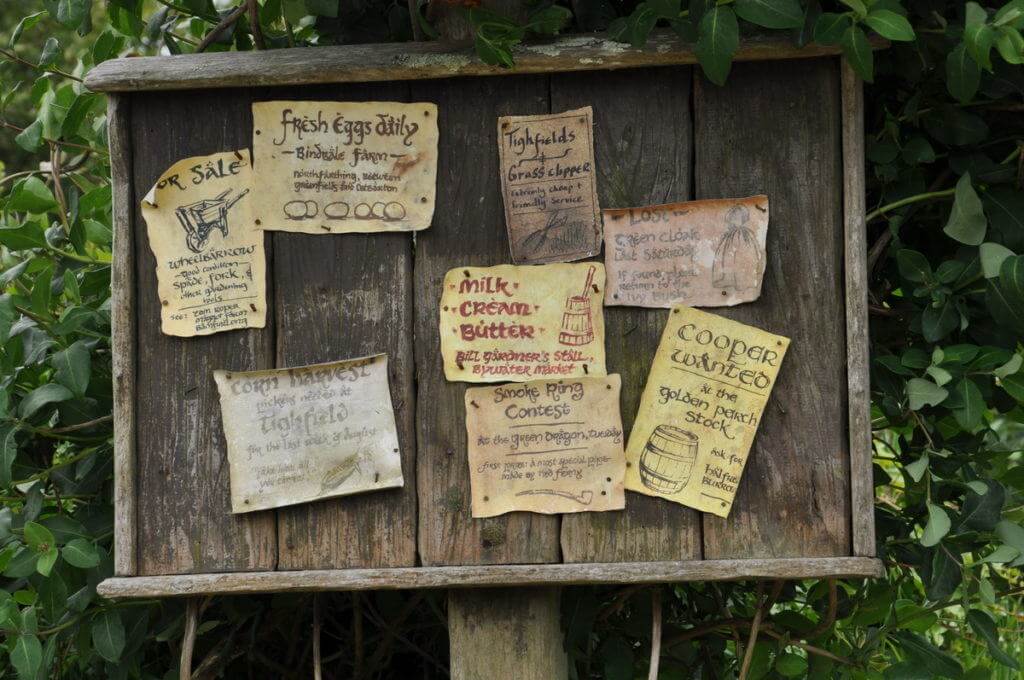 OR SALE
WHEELBARROW
- good condition -
SPADE, FORK, &
other gardening
tools
SEE: TOM ROPER
FRESH EGGS dAILY
- Bindbale FARM -
northfarthing, between
greenfields and oatbarton
Tighfields
Grass clipper
Extremly cheap +
friendly service
LOST -
Green cloak
Last Saturday
If found, please
return to the
Ivy Bush
MILK
CREAM
BUTTER
BILL GARDNER'S STALL,
BYWATER MARKET
CORN HARVEST
pickers needed at
Tighfield
for the last week of August
Take half all
you carry!
Smoke Ring
Contest
At the GREEN DRAGON, TUESDAY
first prize: A most special pipe
made by
COOPER
WANTED
At the
golden perch
Stock
Ask for